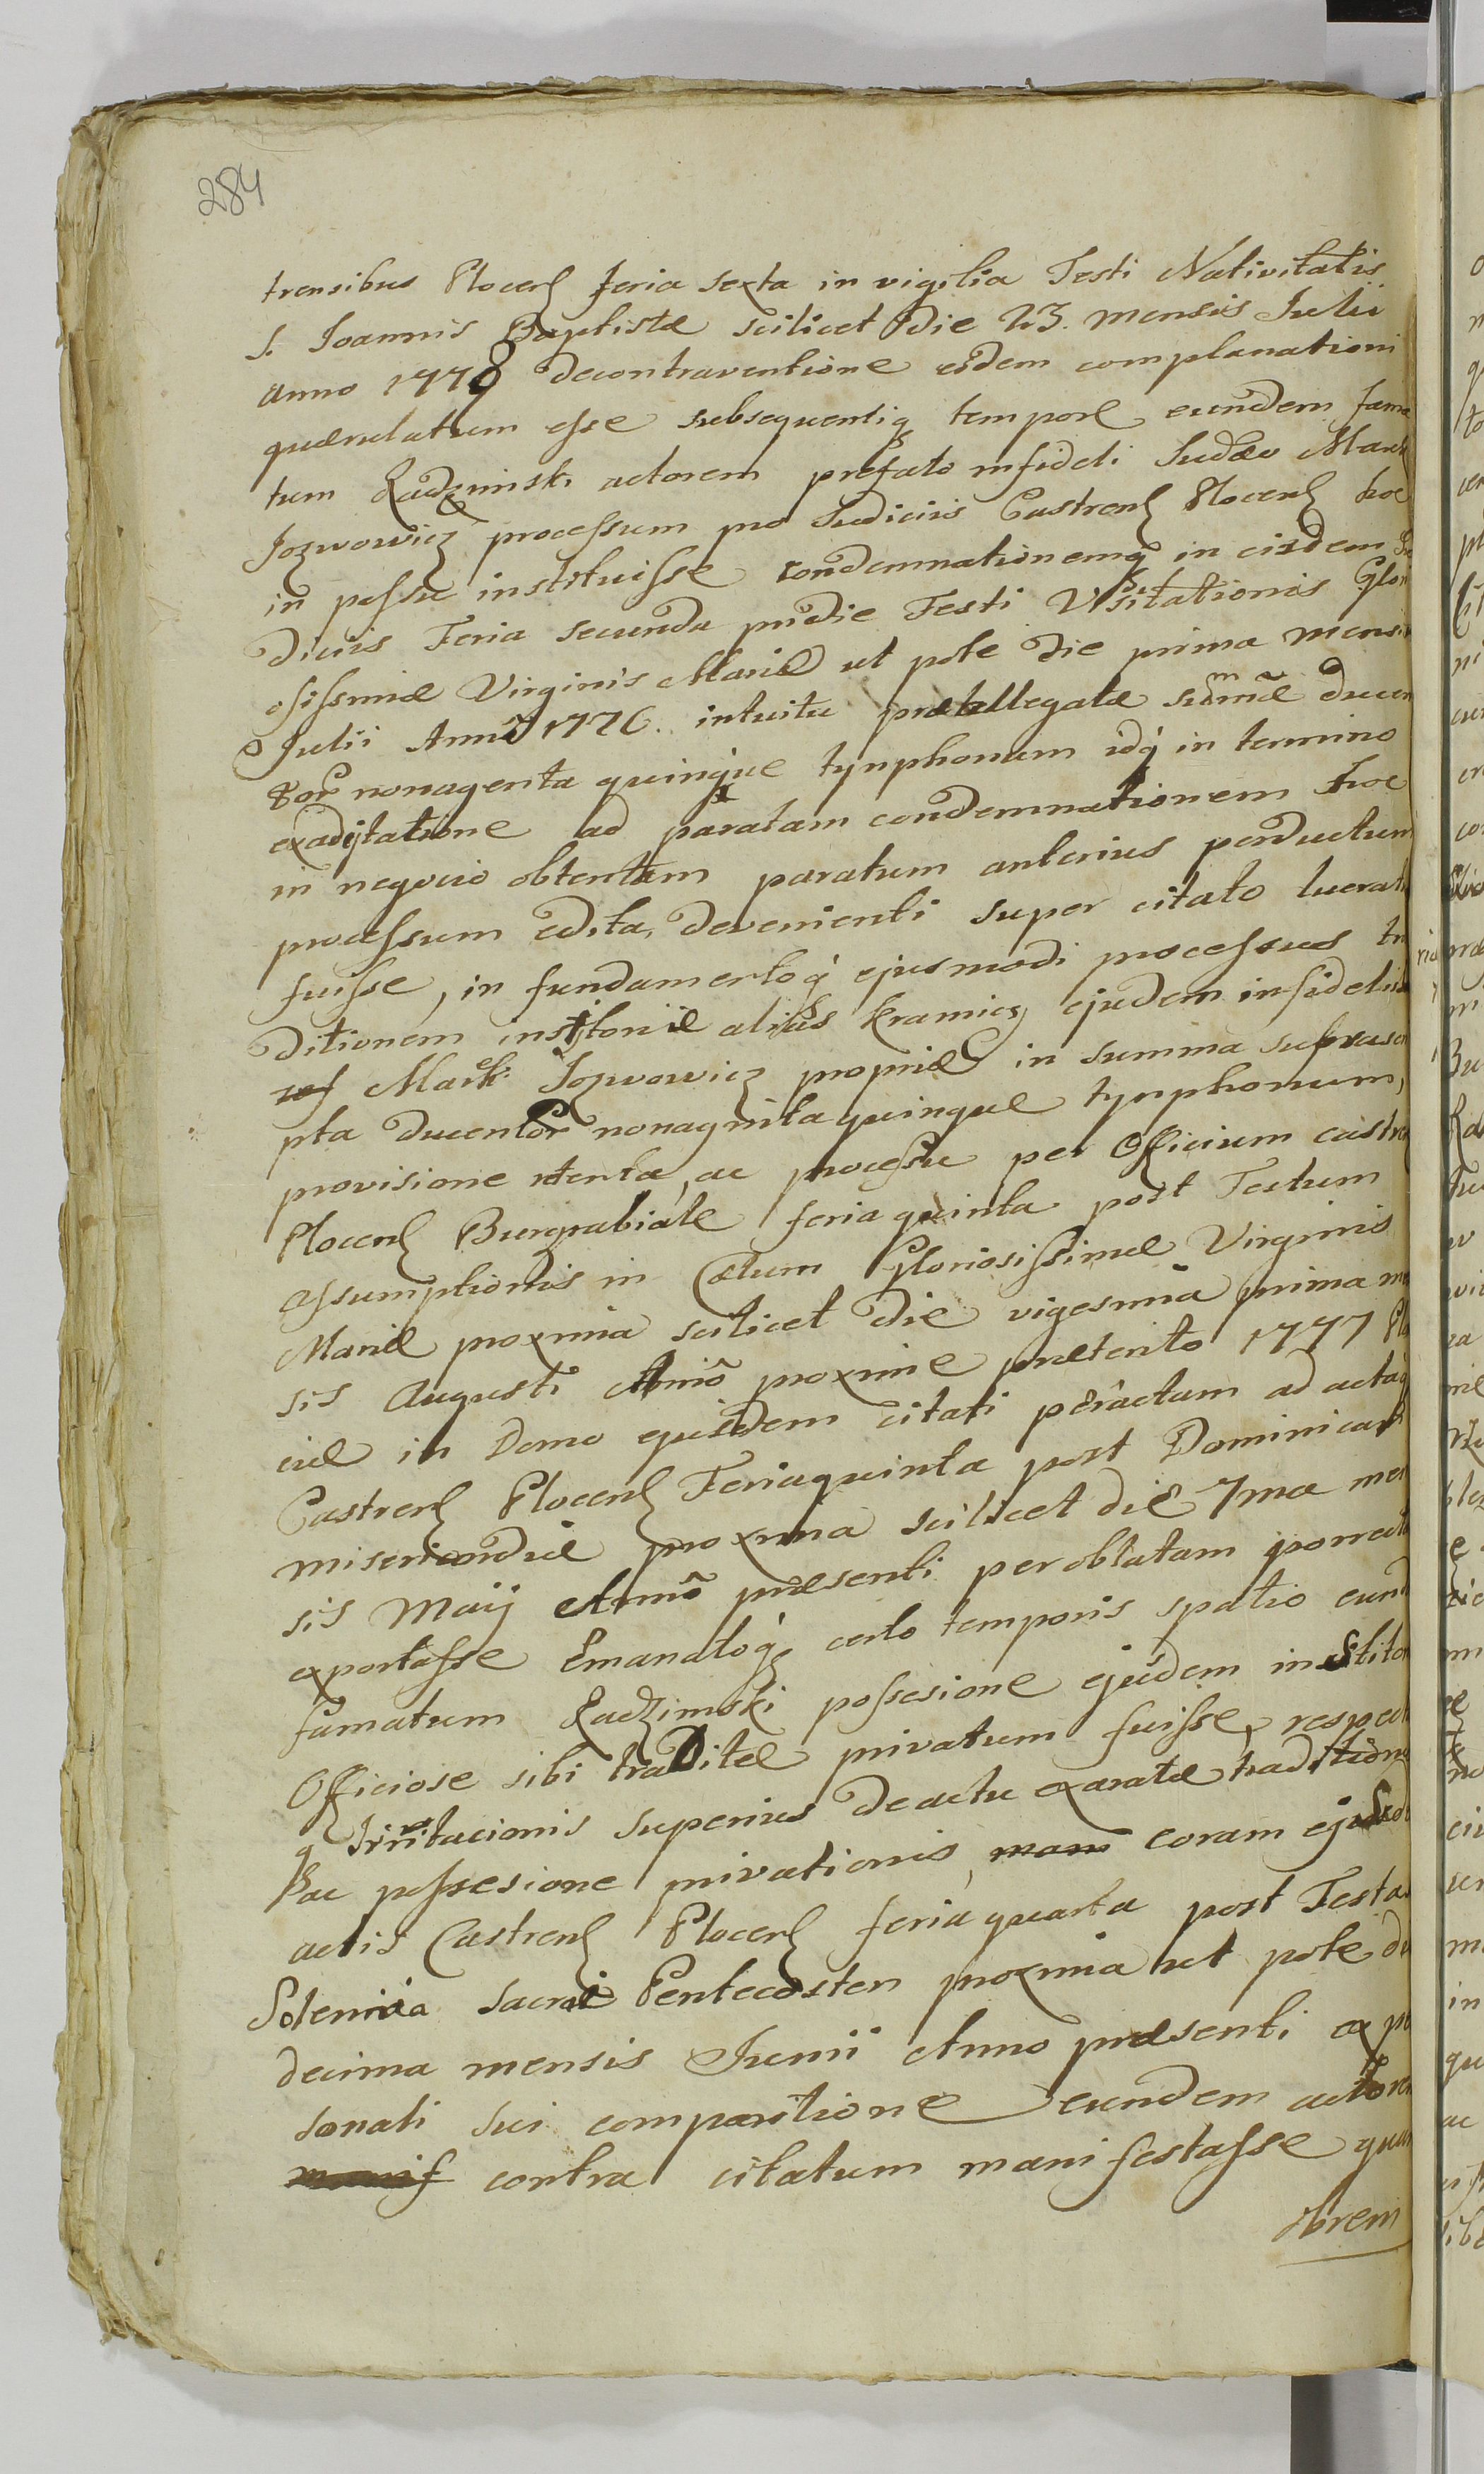 284
trensibus Plocens Feria sexta in vigilia Festi Nativitatis
S. Joannis Baptistæ scilicet die 23. mensis Julii
anno 1778 decontraventione eidem complanationi
quærulatum esse subsequentiq tempore eundem fama
tum Radzimski actorem prefato infideli Judæo Mark
Jozwowicz processum pro Judiciis Castrens Plocens hoc
in passu instituisse condemnationemq in eisdem Ju
diciis Feria secunda pridie Festi Visitationis Glori
osissimæ Virginis Mariæ ut pote die prima mensis
Julii Anno 1776. intuitu præallegatæ summæ ducen
tor nonagenta quinque tynphonum idq in termino
exadijtatione ad paratam condemnationem hoc
in negocio obtentam paratum anterius perductum
processum edita, devenienti super citato lucrat
fuisse, in fundamentoq ejusmodi processus tra
ditionem institoriæ alias Kramicz ejusdem infidelis
Mark Jozwowicz propriæ in summa suprascri
pta ducentor nonagnita quinque tynphonum,
provisione retenta, ac processu per Officium castren
Plocens Burgrabiale feria quinta post Festum
assumptionis in Cœlum Gloriosissimæ Virginis
Mariæ proxima scilicet die vigesima prima men
sis Augusti Anno proxime præterito 1777 Plo
ciæ in Domo ejusdem citati peractam ad acta
Castrens Plocens Feria quinta post Dominicam
misericordiæ proxima scilicet die 7ma men
sis Maij Anno præsenti per oblatam porrect
exportasse Emanatoq certo temporis spatio eund
famatum Radzimski possesione ejusdem institor
Officiose sibi traditæ privatum fuisse, respect
q Irritacionis superius de actu exaratæ traditione
ac possesione privationis, coram ejusd
actis Castrens Plocens feria quarta post Festa
Solemnia Sacræ Pentecosten proxima ut pote di
decima mensis Junii Anno præsenti ex per
sonali sui comparitione eundem actorem
contra citatum manifestasse quam
obrem